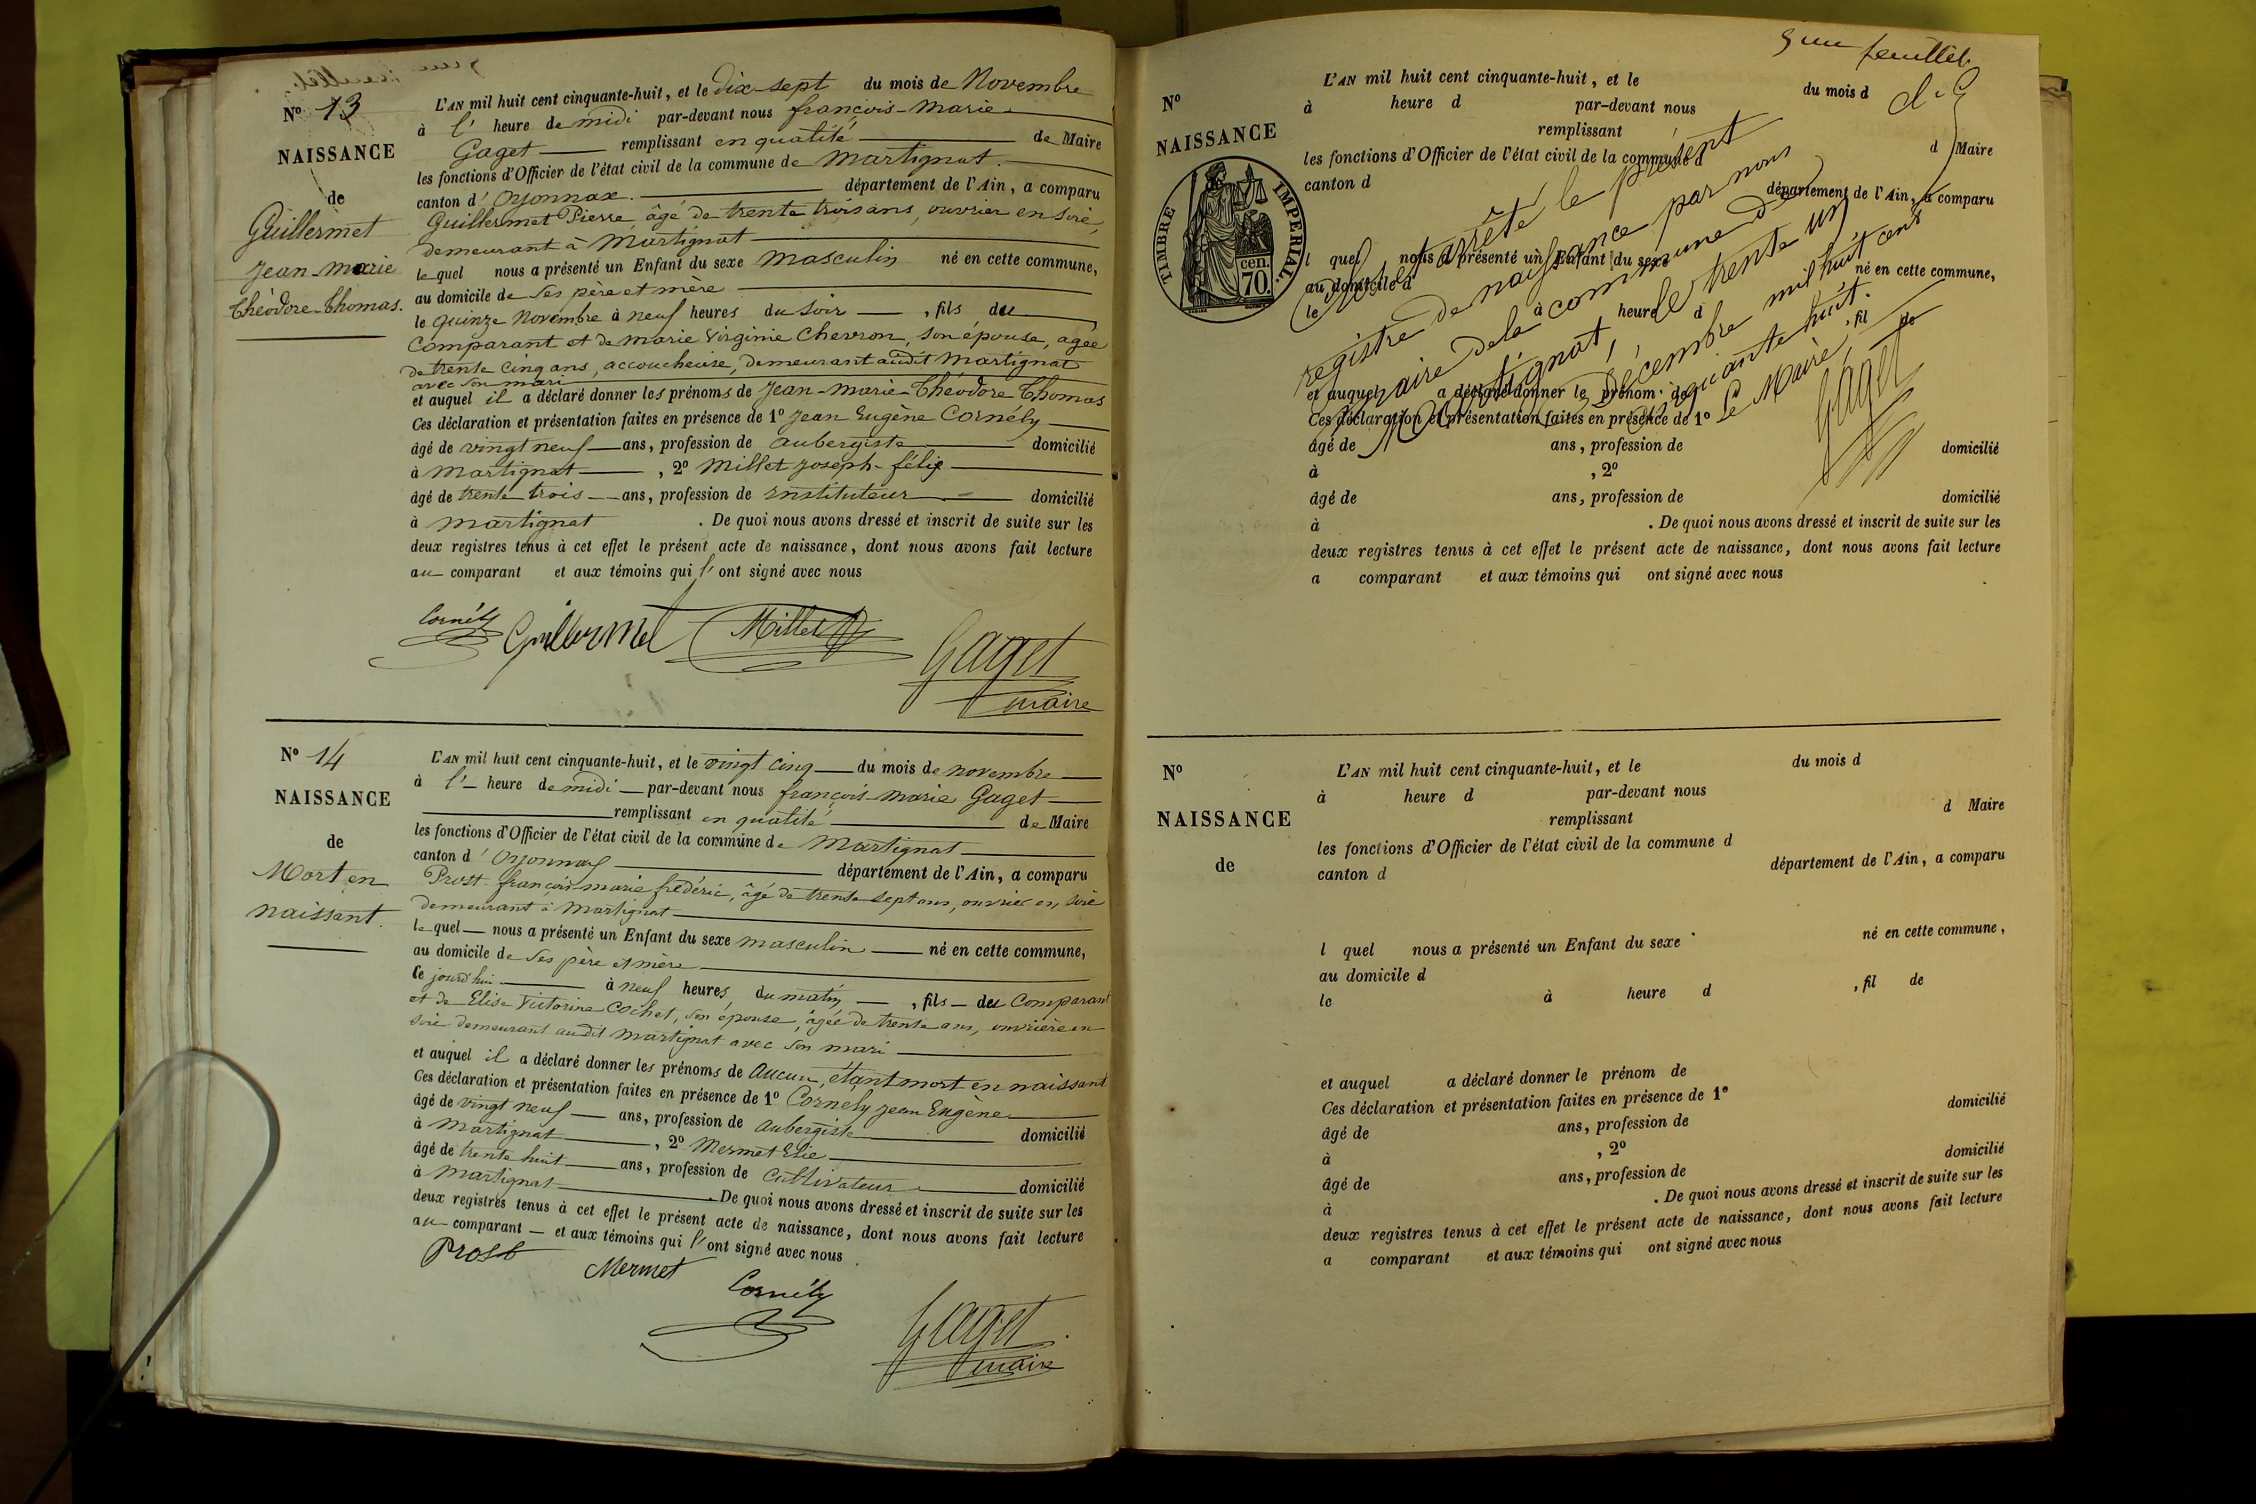 N° 13
NAISSANCE
de
Guillermet
Jean-Marie
Théodore-Thomas.
L'AN mil huit cent cinquante-huit, et le dix-sept du mois de Novembre
à l' heure de midi par-devant nous françois-Marie
Gaget remplissant en qualité de Maire
les fonctions d'Officier de l'état civil de la commune de Martignat.
canton d'Oyonnax. département de l'Ain, a comparu
Guillermet Pierre, âgé de trente trois ans, ouvrier en soie,
demeurant à Martignat
lequel nous a présenté un Enfant du sexe masculin né en cette commune,
au domicile de ses père et mère
le quinze Novembre à neuf heures du soir, fils du
Comparant et de Marie Virginie Chevron, son épouse, agée
de trente cinq ans, accoucheuse, demeurant audit Martignat
avec son mari
et auquel il a déclaré donner les prénoms de Jean-Marie-Théodore Thomas
Ces déclaration et présentation faites en présence de 1° Jean Eugène Cornély
âgé de vingt neuf ans, profession de aubergiste domicilié
à Martignat, 2° Millet Joseph-félix
âgé de trente trois ans, profession de instituteur domicilié
à Martignat. De quoi nous avons dressé et inscrit de suite sur les
deux registres tenus à cet effet le présent acte de naissance, dont nous avons fait lecture
au comparant et aux témoins qui l'ont signé avec nous
Cornély Guillermet Millet
Gaget
maire
N° 14
NAISSANCE
de
Mort en
naissant.
L'AN mil huit cent cinquante-huit, et le vingt cinq du mois de novembre
à l' heure de midi par-devant nous françois marie Gaget
remplissant en qualité de Maire
les fonctions d'Officier de l'état civil de la commune de Martignat
canton d'Oyonnax département de l'Ain, a comparu
Prost françois-marie frédéric, âgé de trente sept ans, ouvrier en soie
demeurant à Martignat
lequel nous a présenté un Enfant du sexe masculin né en cette commune,
au domicile de ses père et mère
Ce jourd'hui à neuf heures, du matin, fils du Comparant
et de Elise Victorine Cochet, son épouse, âgée de trente ans, ouvrière en
soie demeurant audit Martignat avec son mari
et auquel il a déclaré donner les prénoms de Aucun, étant mort en naissant
Ces déclaration et présentation faites en présence de 1° Cornély Jean Eugène
âgé de vingt neuf ans, profession de aubergiste domicilié
à Martignat, 2° Mermet Elie
âgé de trente huit ans, profession de cultivateur domicilié
à Martignat. De quoi nous avons dressé et inscrit de suite sur les
deux registres tenus à cet effet le présent acte de naissance, dont nous avons fait lecture
au comparant et aux témoins qui l'ont signé avec nous
Prost Mermet
Cornély
Gaget
maire
feuillet
N°
NAISSANCE
TIMBRE IMPERIAL.
cen.
70.
L'AN mil huit cent cinquante-huit, et le du mois d
à heure d par-devant nous
remplissant d Maire
les fonctions d'Officier de l'état civil de la commune d
canton d département de l'Ain, a comparu
l quel nous a présenté un Enfant du sexe né en cette commune,
au domicile d
le à heure d , fil de
Clos et arrêté le présent
registre de naissance par nous
Maire de la commune de
Martignat, le trente un
Décembre mil huit cent
cinquante huit.
Le Maire,
Gaget
et auquel a déclaré donner le prénom de
Ces déclaration et présentation faites en présence de 1°
âgé de ans, profession de domicilié
à , 2°
âgé de ans, profession de domicilié
à . De quoi nous avons dressé et inscrit de suite sur les
deux registres tenus à cet effet le présent acte de naissance, dont nous avons fait lecture
a comparant et aux témoins qui ont signé avec nous
N°
NAISSANCE
de
L'AN mil huit cent cinquante-huit, et le du mois d
à heure d par-devant nous
remplissant d Maire
les fonctions d'Officier de l'état civil de la commune d
canton d département de l'Ain, a comparu
l quel nous a présenté un Enfant du sexe né en cette commune,
au domicile d
le à heure d , fil de
et auquel a déclaré donner le prénom de
Ces déclaration et présentation faites en présence de 1°
âgé de ans, profession de domicilié
à , 2°
âgé de ans, profession de domicilié
à . De quoi nous avons dressé et inscrit de suite sur les
deux registres tenus à cet effet le présent acte de naissance, dont nous avons fait lecture
a comparant et aux témoins qui ont signé avec nous